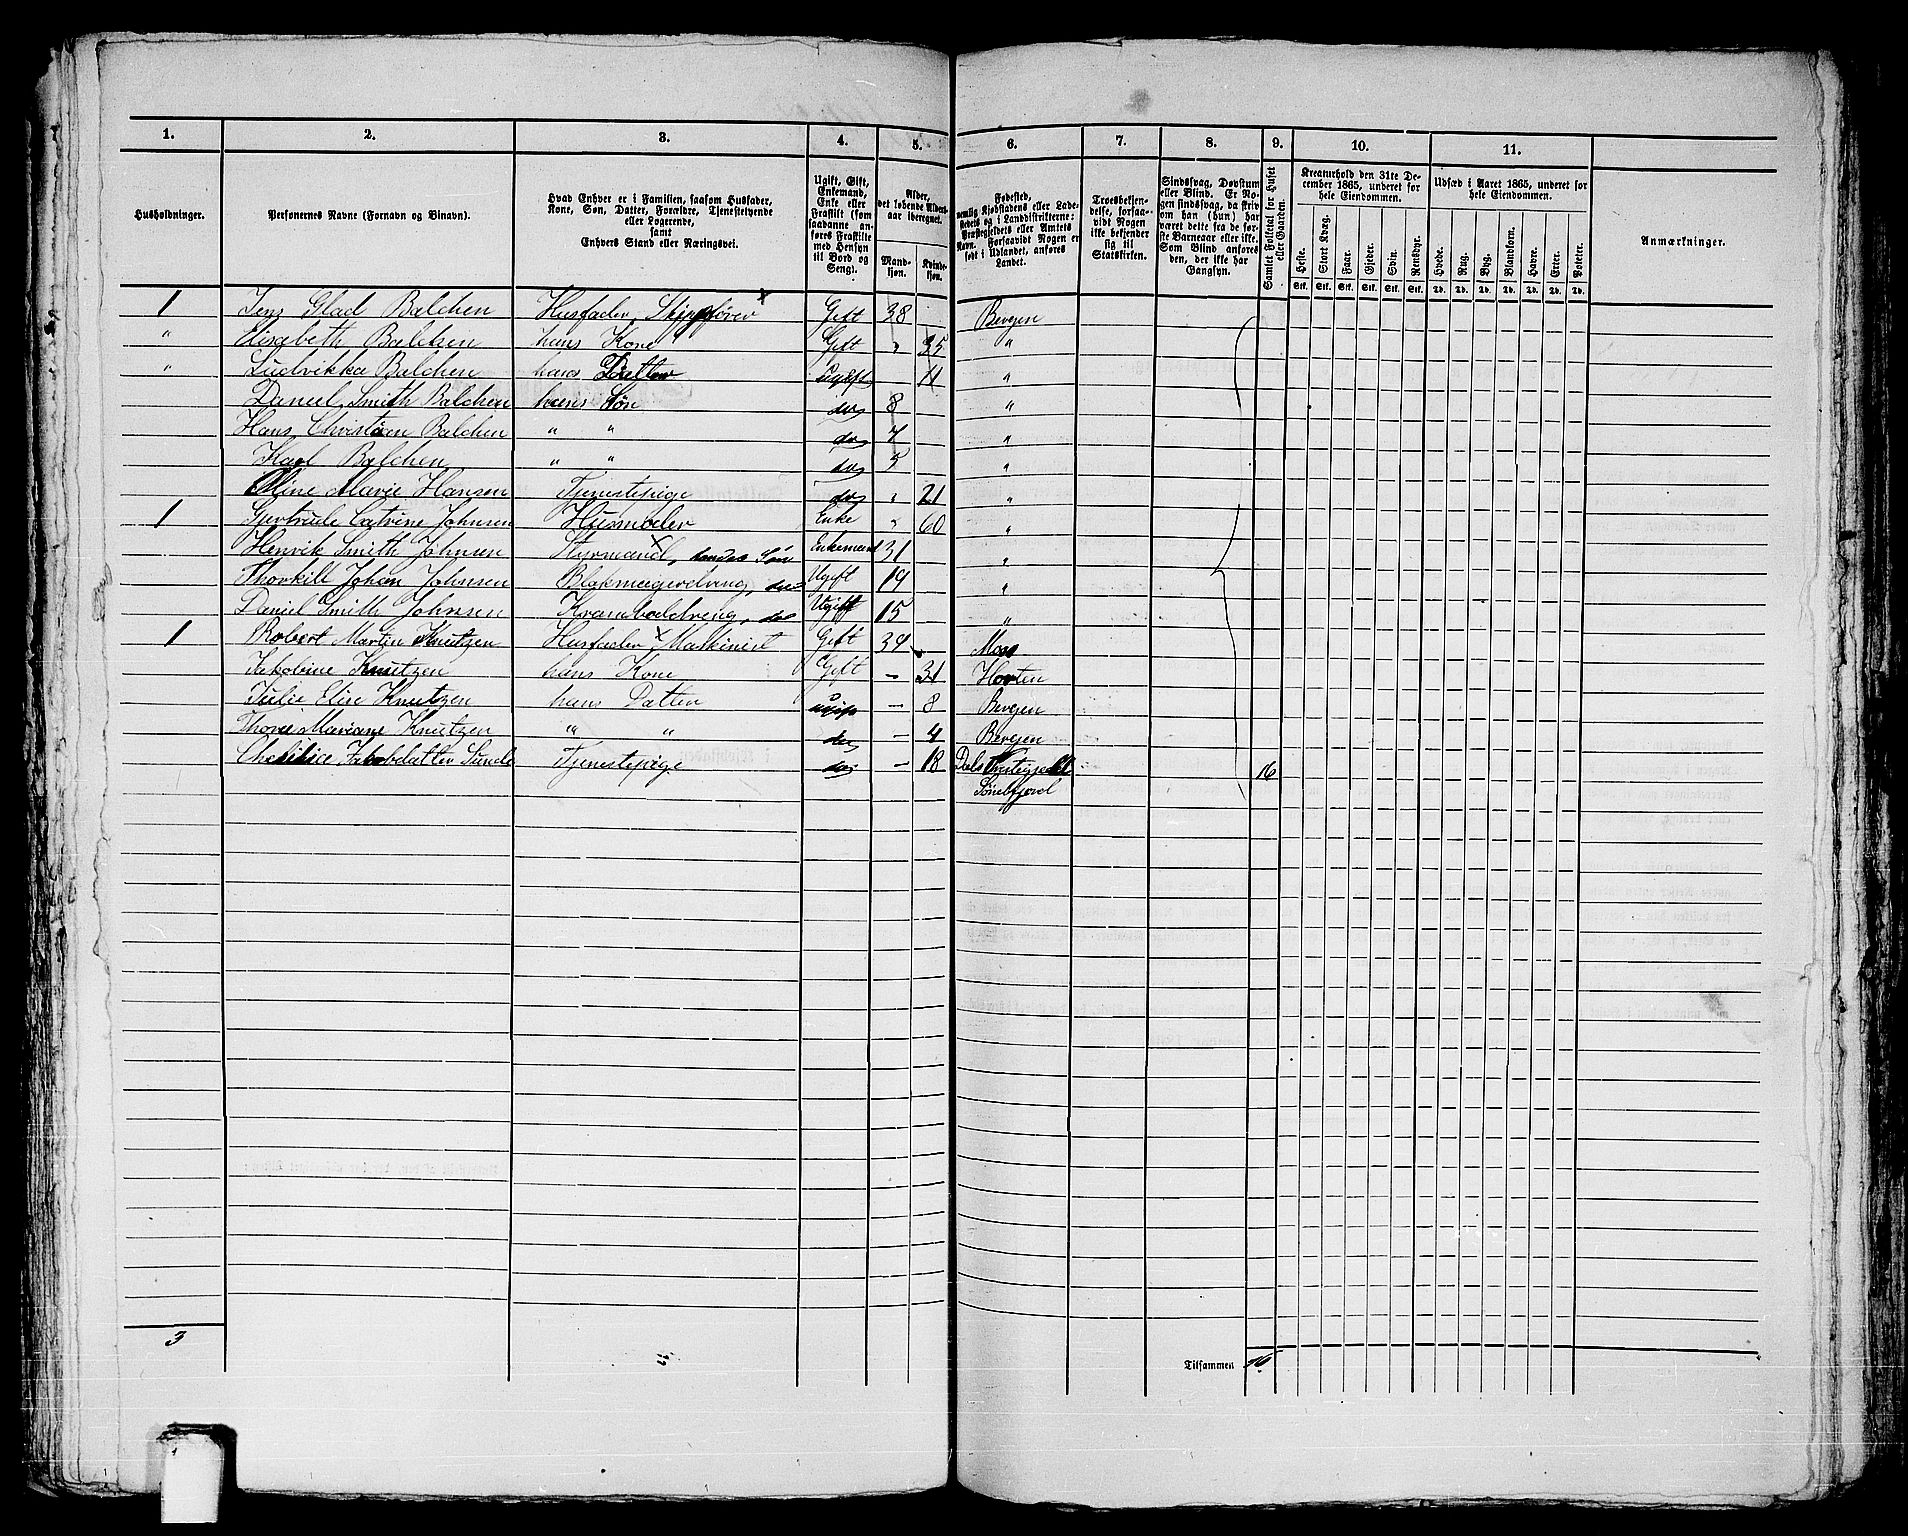 1. 2. 3. 4. 5. 6. 7. 8. 9. 10. 11.
Husholdninger.
Personernes Navne (Fornavn og Binavn).
Hvad Enhver er i Familien, saasom Husfader,
Kone, Søn, Datter, Forældre, Tjenestetyende
eller Logerende,
samt
Enhvers Stand eller Næringsvei.
Ugift, Gift,
Enkemand,
Enke eller
Fraskilt (som
saadanne an-
føres Fraskilte
med Hensyn
til Bord og
Seng).
Alder,
det løbende Alders-
aar iberegnet.
Mand-
kjøn.
Kvinde-
kjøn.
Fødested,
nemlig Kjøbstadens eller Lade-
stedets og i Landdistrikterne:
Præstegjeldets eller Amtets
Navn. Forsaavidt Nogen er
født i Udlandet, anføres
Landet.
Troesbekjen-
delse, forsaa-
vidt Nogen
ikke bekjender
sig til
Statskirken.
Sindssvag, Døvstum
eller Blind. Er No-
gen sindssvag, da skriv
om han (hun) har
været dette fra de før-
ste Barneaar eller ikke.
Som Blind anføres
den, der ikke har
Gangsyn.
Samlet Folketal for Huset
eller Gaarden.
Kreaturhold den 31te De-
cember 1865, underet for
hele Eiendommen.
Heste. Stort Kvæg. Faar. Gjeder. Svin. Rensdyr.
Stk. Stk. Stk. Stk. Stk. Stk.
Udsæd i Aaret 1865, underet for
hele Eiendommen.
Hvede. Rug. Byg. Blandkorn. Havre. Erter. Poteter.
Td. Td. Td. Td. Td. Td. Td.
Anmærkninger.
1 Jens Glad Balchen Husfader, Skipsfører Gift 38 Bergen
" Elisabeth Balchen hans Kone Gift " 35 "
" Ludvikka Balchen hans Datter Ugift 11 "
Daniel Smith Balchen hans Søn do 8 "
Hans Christian Balchen " " do 7 "
Karl Balchen " " do 5 "
Oline Marie Hansen Tjenestepige do " 21 "
1 Gjertrude Catrine Johnsen Husmoder Enke " 60 "
Henrik Smith Johnsen Styrmand, hendes Søn Enkemand 31 "
Thorkill Johan Johnsen Blokmagerdreng, do Ugift 19 "
Daniel Smith Johnsen Kramboddreng, do Ugift 15 "
1 Robert Martin Knutzen Husfader, Maskinist Gift 34 Moss
Jakobine Knutzen hans Kone Gift — 31 Horten
Julie Elise Knutzen hans Datter ugift — 8 Bergen
Thora Mariane Knutzen " " do — 4 Bergen
Jakobdatter Sunde Tjenestepige do — 18 Dals Prestegjeld 16
Søndfjord
3
Tilsammen 16